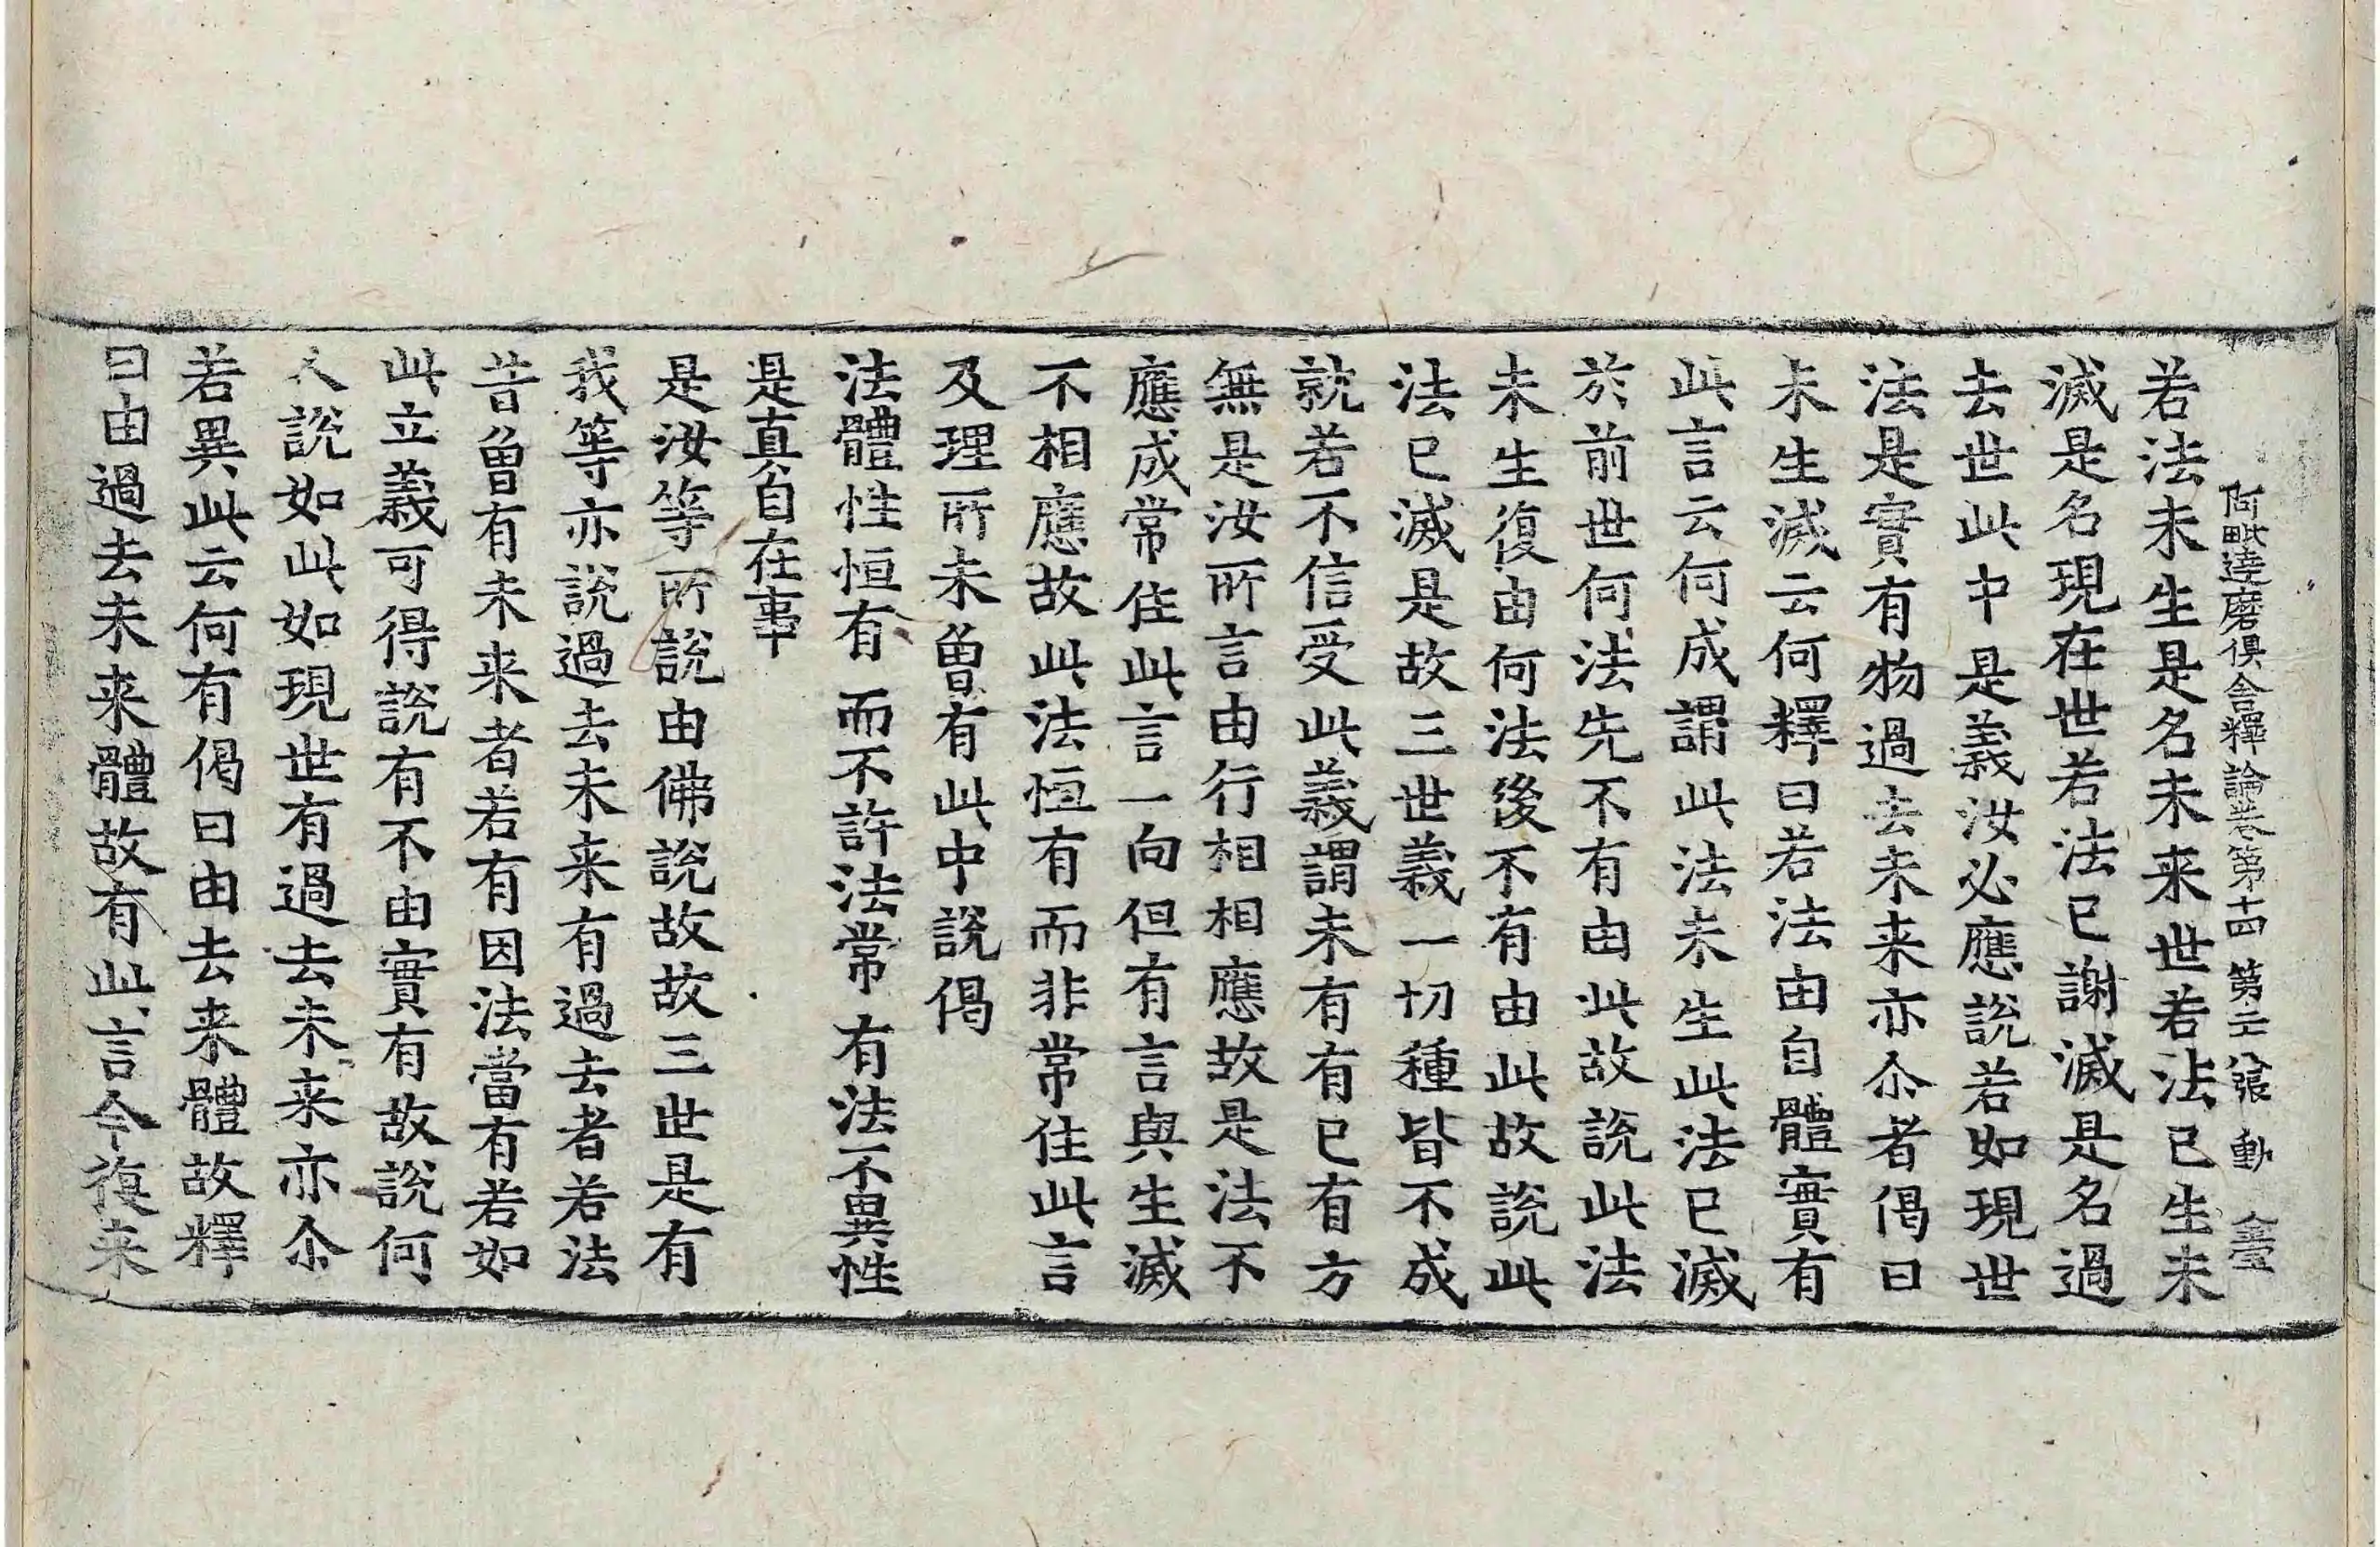 阿毗達磨俱舍釋論卷第十四 第二張 動
若法未生是名未来世若法已生未
滅是名現在世若法已謝滅是名過
去世此中是義汝必應說若如現世
法是實有物過去未来亦尒者偈曰
未生滅云何釋曰若法由自體實有
此言云何成謂此法未生此法已滅
於前世何法先不有由此故說此法
未生復由何法後不有由此故說此
法已滅是故三世義一切種皆不成
就若不信受此義謂未有有已有方
無是汝所言由行相相應故是法不
應成常住此言一向但有言與生滅
不相應故此法恒有而非常住此言
及理所未曾有此中說偈
法體性恒有 而不許法常 有法不異性
是真自在事
是汝等所說由佛說故故三世是有
我等亦説過去未来有過去者若法
昔曾有未来者若有因法當有若如
此立義可得說有不由實有故說何
人說如此如現世有過去未来亦尒
若異此云何有偈曰由去来體故釋
曰由過去未来體故有此言今復来